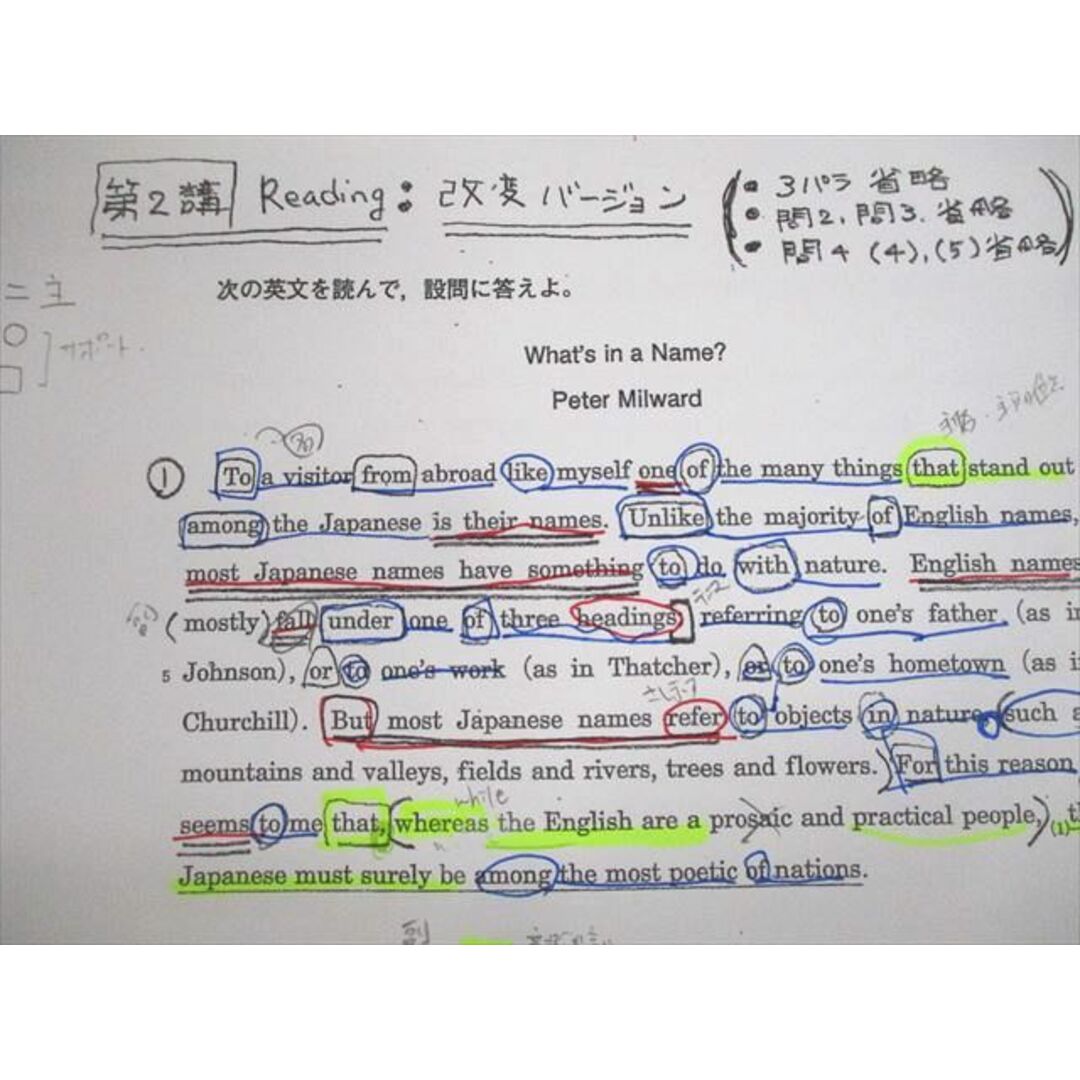 第2講 Reading: 改変バージョン
・3パラ 省略
・問2、問3、省略
・問4 (4),(5)省略
= 主
サポート
次の英文を読んで，設問に答えよ。
What's in a Name?
Peter Milward
① To a visitor from abroad like myself one of the many things that stand out
among the Japanese is their names. Unlike the majority of English names,
most Japanese names have something to do with nature. English names
(mostly) fall under one of three headings, referring to one's father (as in
5 Johnson), or to one's work (as in Thatcher), or to one's hometown (as i
Churchill). But most Japanese names refer to objects in nature, such a
mountains and valleys, fields and rivers, trees and flowers. For this reason
while
seems to me that, whereas the English are a prosaic and practical people, (1) t
Japanese must surely be among the most poetic of nations.